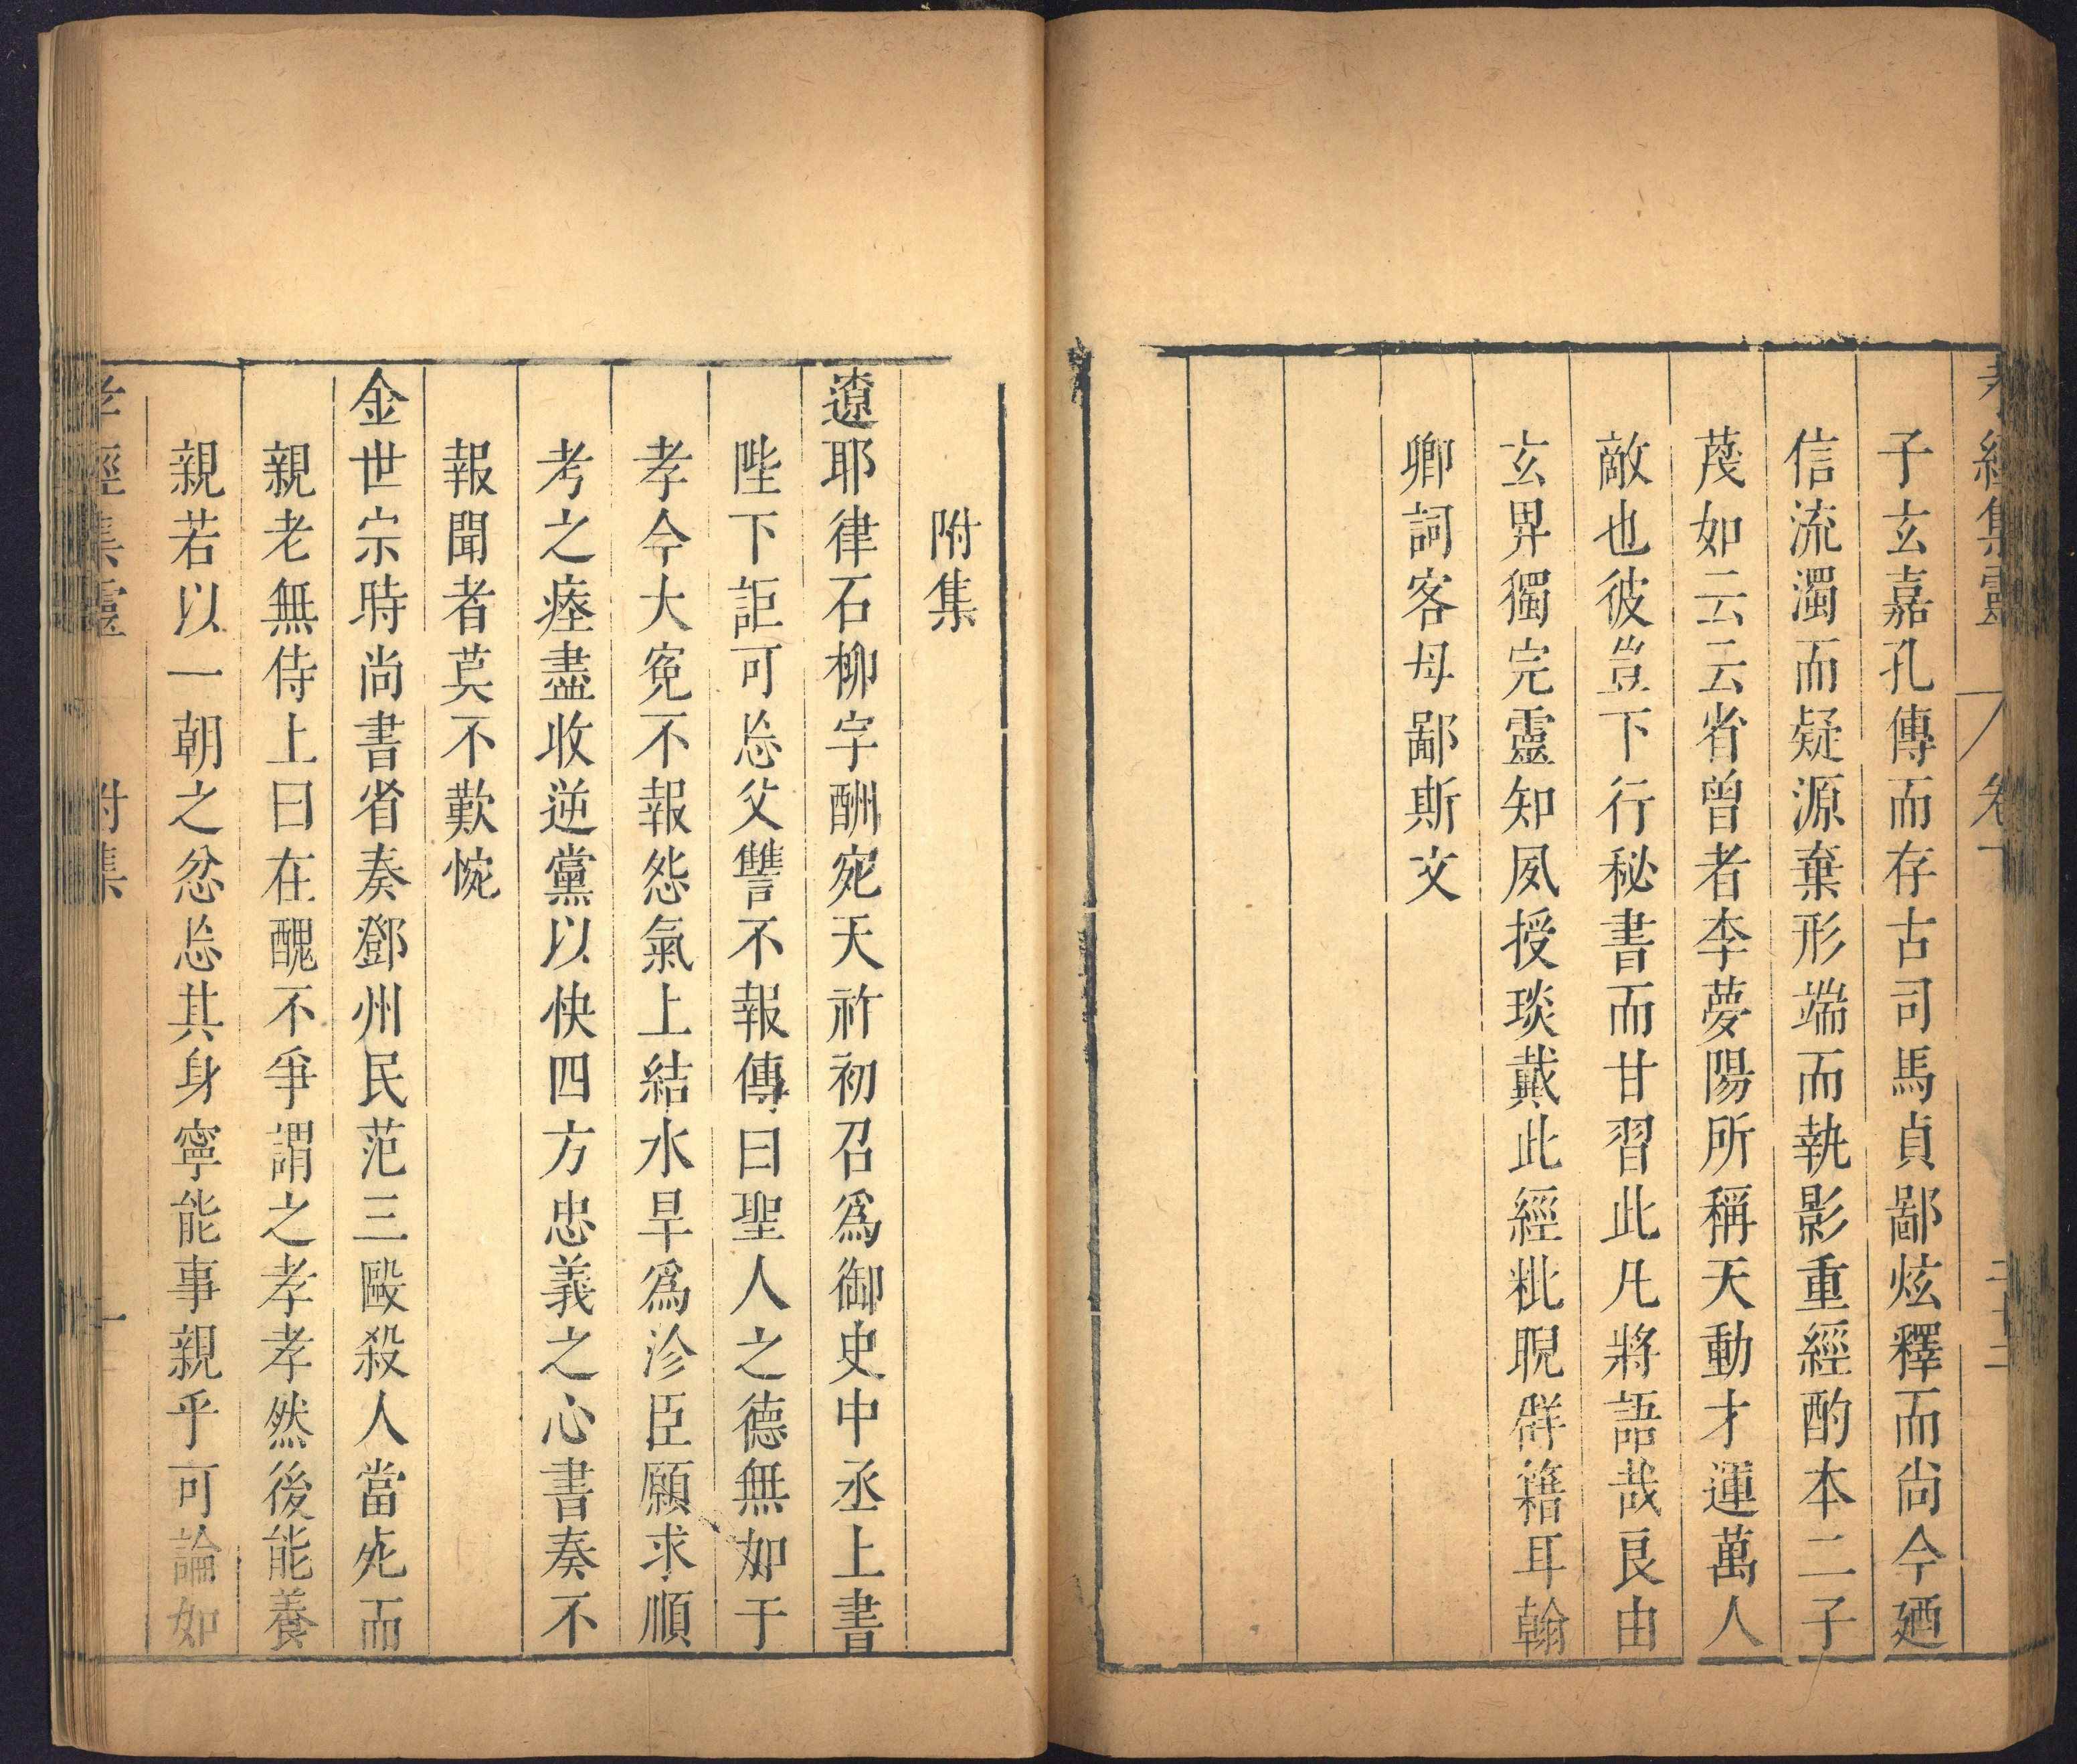 孝經集靈 卷下 二十二
子玄嘉孔傳而存古司馬貞鄙炫釋而尚今廼
信流濁而疑源棄形端而執影重經酌本二子
茂如云云省曾者李夢陽所稱天動才運萬人
敵也彼豈下行秘書而甘習此凡將語哉良由
玄畀獨完靈知夙授琰戴此經枇睨群籍耳翰
卿詞客毋鄙斯文
附集
遼耶律石柳字酬宛天祚初召爲御史中丞上書
陛下詎可忘父讐不報傳曰聖人之德無如于
孝今大寃不報怨氣上結水旱爲沴臣願求順
考之瘞盡收逆黨以快四方忠義之心書奏不
報聞者莫不歎惋
金世宗時尚書省奏鄧州民范三毆殺人當死而
親老無侍上曰在醜不爭謂之孝孝然後能養
親若以一朝之忿忘其身寧能事親乎可論如
孝經集靈 附集 一